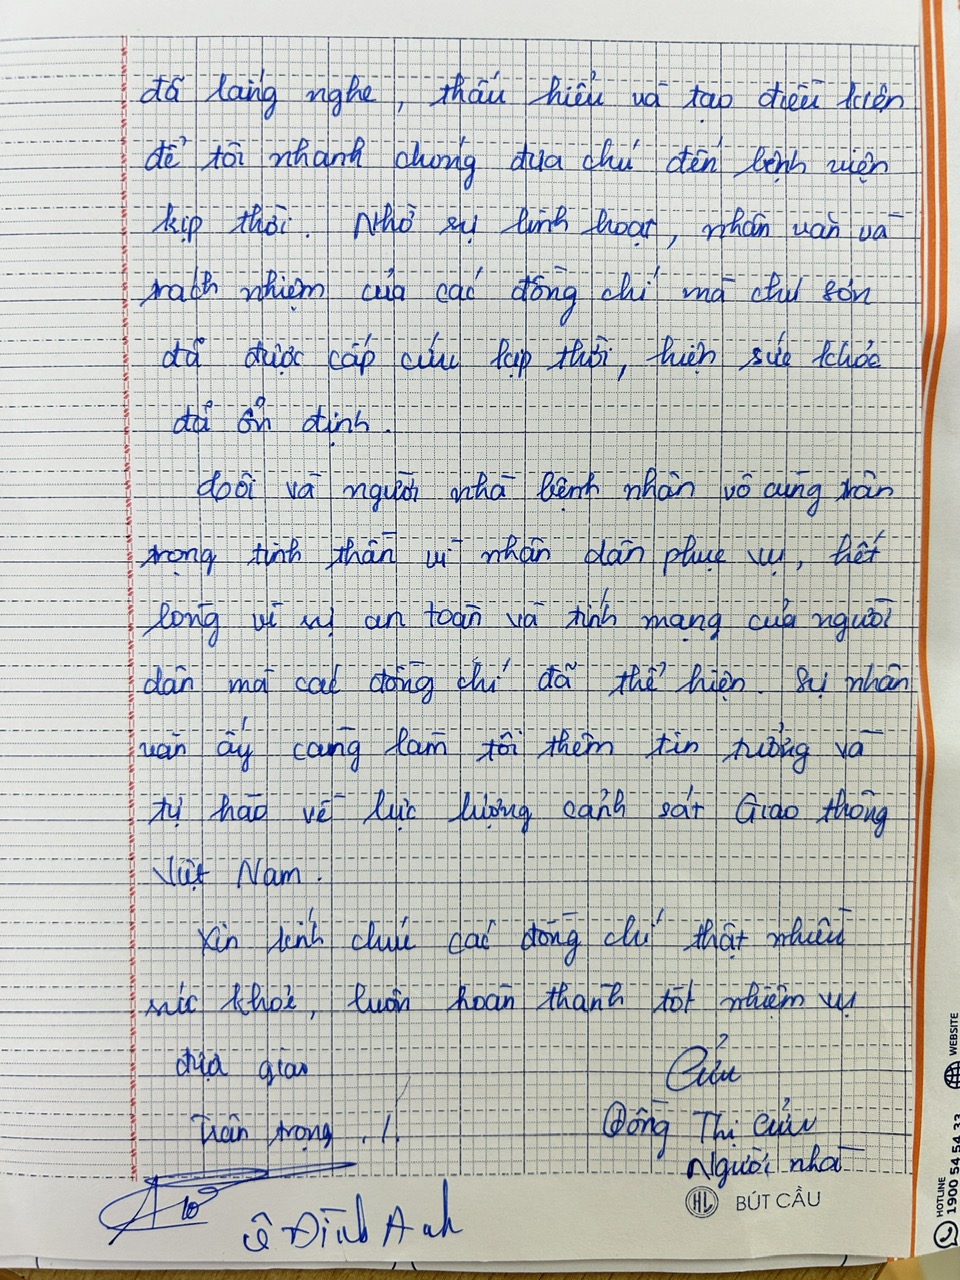 đã lắng nghe, thấu hiểu và tạo điều kiện
để tôi nhanh chóng đưa chú đến bệnh viện
kịp thời. Nhờ sự linh hoạt, nhân văn và
trách nhiệm của các đồng chí mà chú Sơn
đã được cấp cứu kịp thời, hiện sức khỏe
đã ổn định.
Tôi và người nhà bệnh nhân vô cùng trân
trọng tinh thần vì nhân dân phục vụ, hết
lòng vì sự an toàn và tính mạng của người
dân mà các đồng chí đã thể hiện. Sự nhân
văn ấy càng làm tôi thêm tin tưởng và
tự hào về lực lượng cảnh sát Giao thông
Việt Nam.
Xin kính chúc các đồng chí thật nhiều
sức khỏe, luôn hoàn thành tốt nhiệm vụ
được giao
Trân trọng ./.
Cửu
Đồng Thị Cửu
Người nhà
Lê Đình Anh
HL BÚT CẦU
HOTLINE
1900 54 54 33
WEBSITE